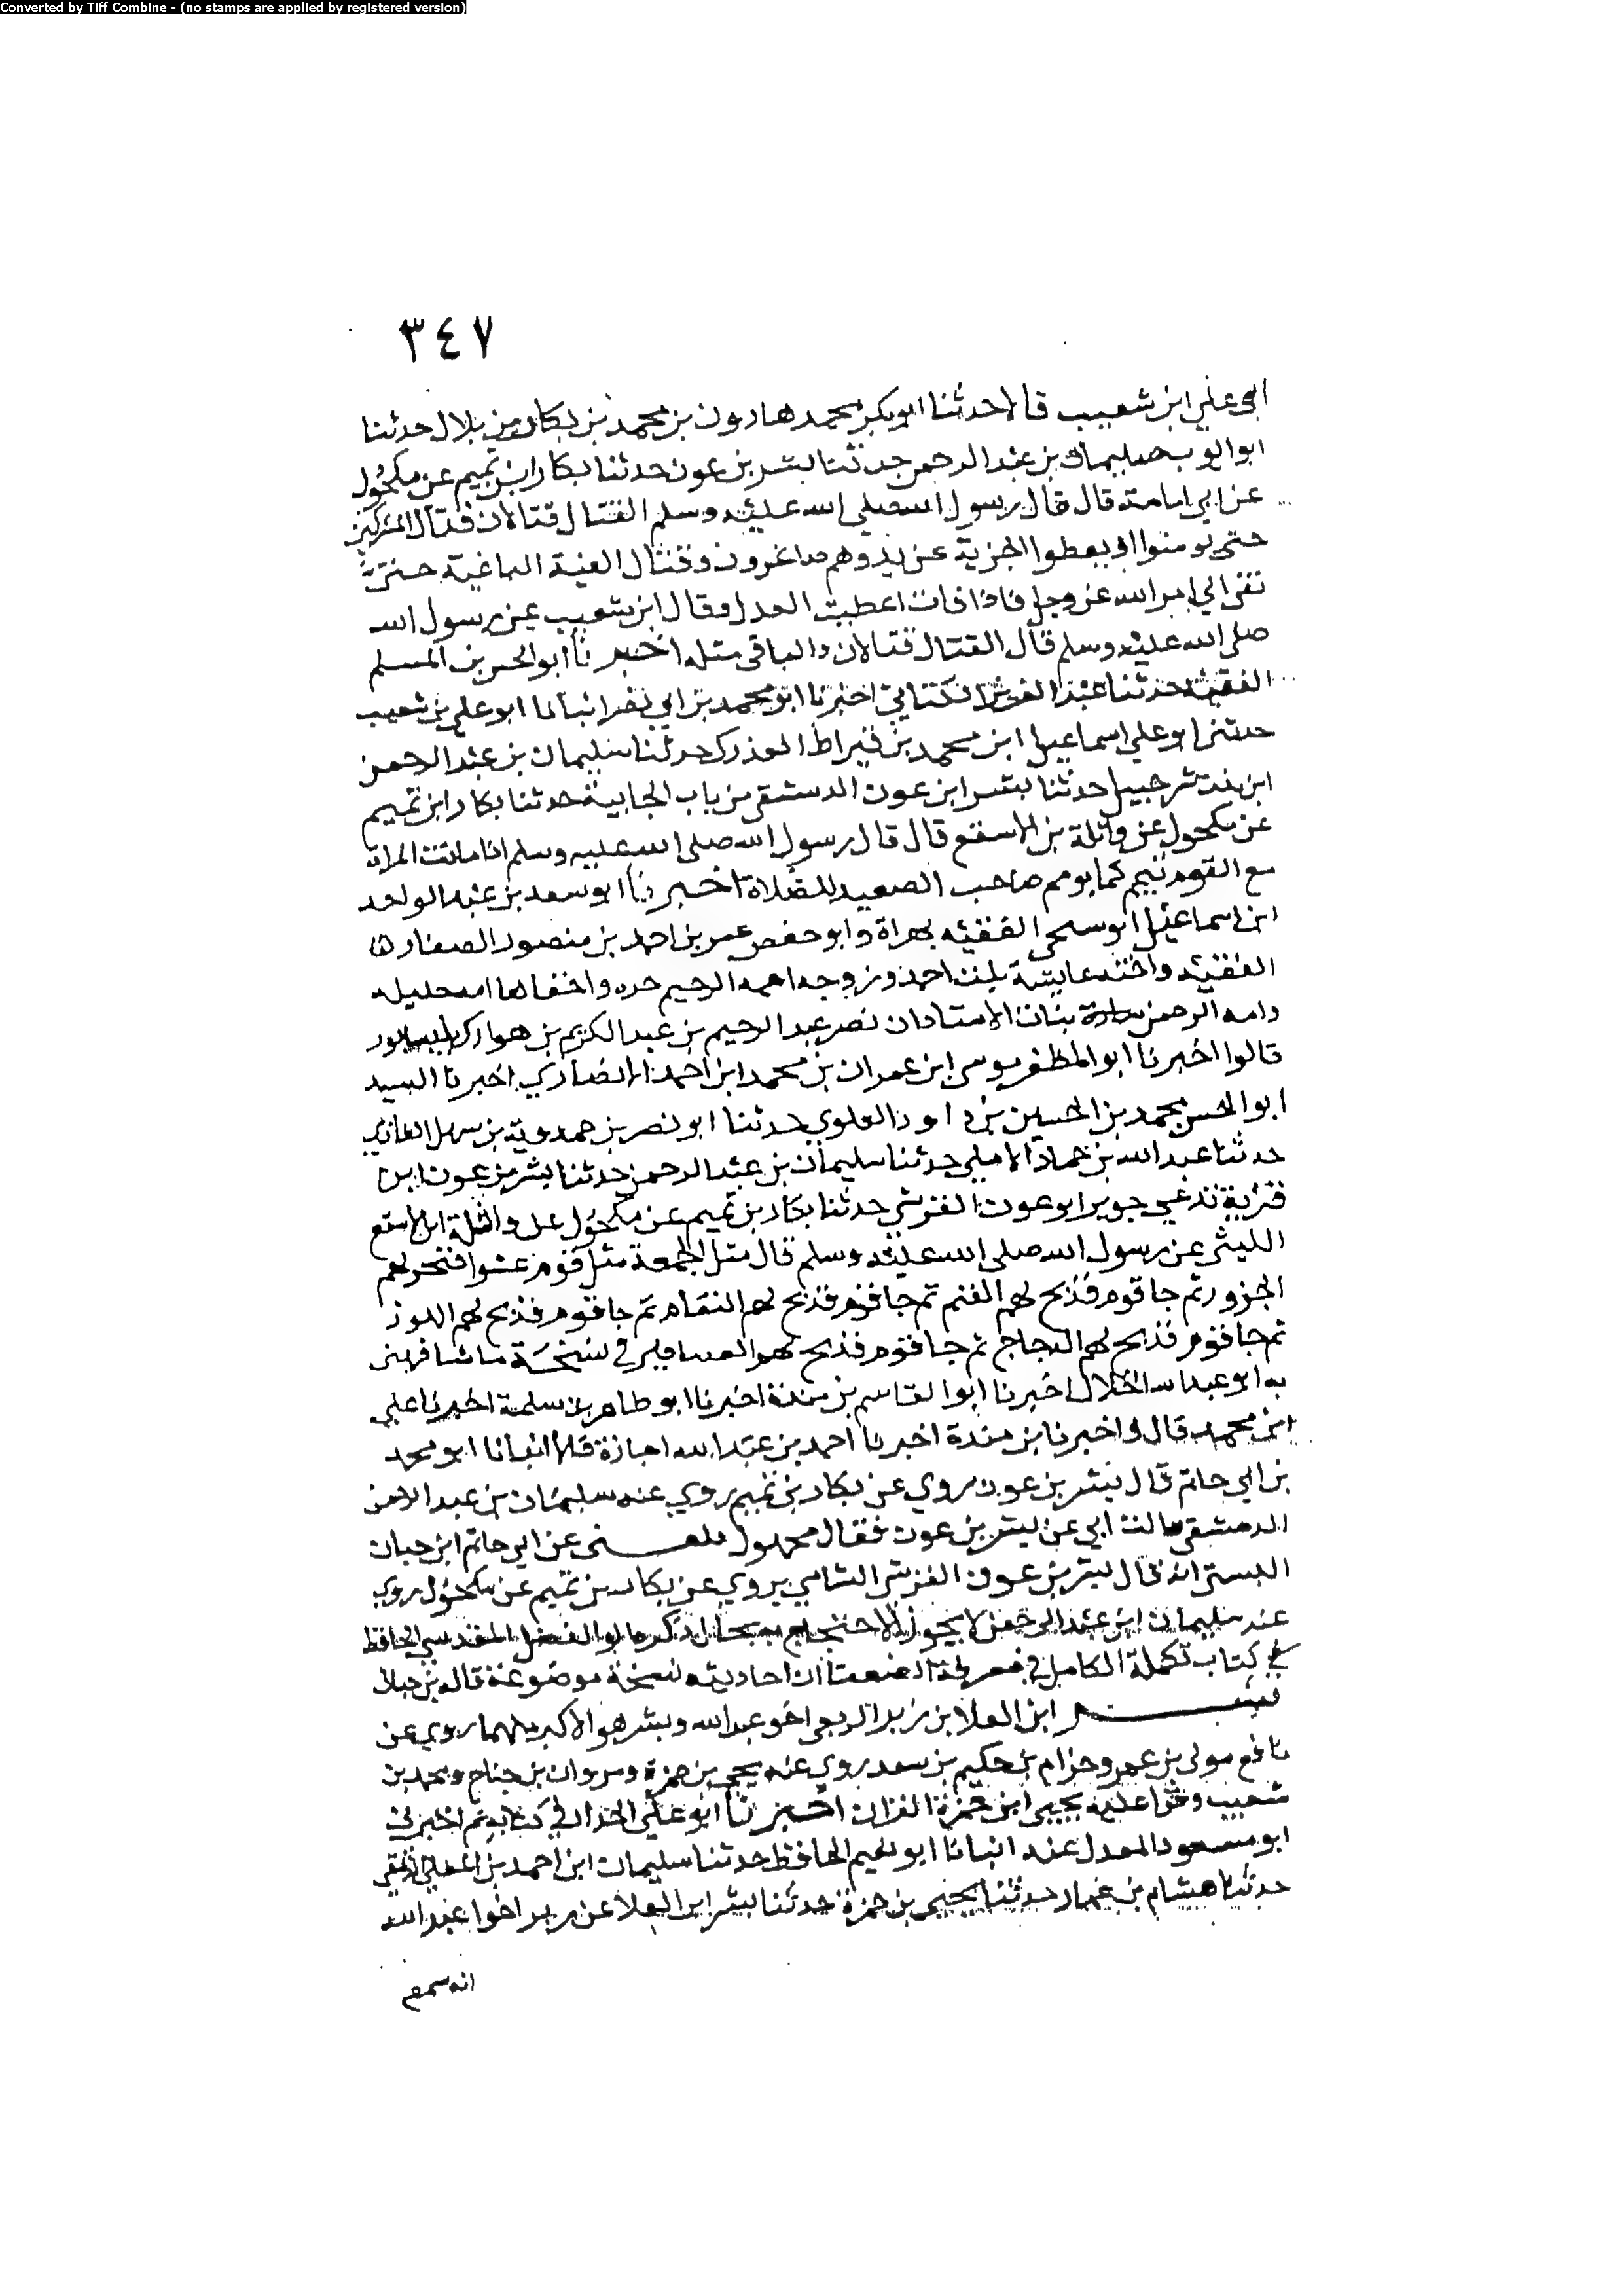 Converted by Tiff Combine - (no stamps are applied by registered version)
٣٤٧
ابي علي ابن شعيب قالا حدثنا ابو بكر محمد هارون بن محمد بن بكار بن بلال حدثنا
ابو ايوب سليمان بن عبد الرحمن حدثنا بشر بن عون حدثنا بكار ابن تميم عن مكحول
عن ابي امامة قال قال رسول الله صلى الله عليه وسلم القتال قتالان قتال المشركين
حتى يومنوا او يعطوا الجزية عن يد وهم صاغرون وقتال الفية الباغية حتى
تفي الي امر الله عز وجل فاذا فات اعطيت العدل وقال ابن شعيب عن رسول الله
صلى الله عليه وسلم قال القتال قتالان والباقي مثله اخبرنا ابو الحسن بن المسلم
الفقيه حدثنا عبد العزيز الكتاني اخبرنا ابو محمد بن ابي نصر انبانا ابو علي بن شعيب
حدثني ابو علي اسماعيل ابن محمد بن قيراط العذري حدثنا سليمان بن عبد الرحمن
ابن بنت شرحبيل حدثنا بشر ابن عون الدمشقي من باب الجابية حدثنا بكار ابن تميم
عن مكحول عن واثلة بن الاسقع قال قال رسول الله صلى الله عليه وسلم اذا ماتت المراة
مع القوم تيمم كما يومم صاحب الصعيد للصلاة اخبرنا ابو سعد بن عبد الواحد
ابن اسماعيل البوسنجي الفقيه بهراة وابو حفص عمر بن احمد بن منصور الصفار
الفقيه واخته عايشة بنت احمد وزوجه امه الرحيم حره واختاها امه جليله
وامه الرحمن ساره بنات الاستادان نصر عبد الرحيم بن عبد الكريم بن هوازن
قالوا اخبرنا ابو المظفر موسى ابن عمران بن محمد ابن احمد الانصاري اخبرنا السيد
ابو الحسن محمد بن الحسين بن داود العلوي حدثنا ابو نصر بن حمدوية بن سهل الغازي
حدثنا عبد الله بن حماد الاملي حدثنا سليمان بن عبد الرحمن حدثنا بشر بن عون ابن
قرية تدعي جوبر ابو عون القرشي حدثنا بكار بن تميم عن مكحول عن واثلة ابن الاسقع
الليثي عن رسول الله صلى الله عليه وسلم قال مثل الجمعة مثل قوم غشوا فنحر لهم
الجزور ثم جا قوم فذبح لهم الغنم ثم جا قوم فذبح لهم النعام ثم جا قوم فذبح لهم الوز
ثم جا قوم فذبح لهم الدجاج ثم جا قوم فذبح لهم العصافير في نسخة ما شافهني
به ابو عبد الله الخلال اخبرنا ابو القاسم بن مندة اخبرنا ابو طاهر بن سلمة اخبرنا علي
ابن محمد قال واخبرنا بن مندة اخبرنا احمد بن عبد الله اجازة قالا انبانا ابو محمد
بن ابي حاتم قال بشر بن عون روي عن بكار بن تميم روي عنه سليمان بن عبد الرحمن
الدمشقي سالت ابي عن بشر بن عون فقال مجهول بلغني عن ابي حاتم ابن حبان
البستي انه قال بشر بن عون القرشي الشامي يروي عن بكار بن تميم عن مكحول روي
عنه سليمان ابن عبد الرحمن لا يجوز الاحتجاج به بحال ذكره ابو الفضل المقدسي الحافظ
في كتاب تكملة الكامل في معرفة الضعفا ان احاديثه نسخة موضوعة قاله بن حبان
بشر ابن العلا بن زبر الربعي اخو عبد الله وبشر هو الاكبر منهما روي عن
نافع مولى بن عمر وحزام بن حكيم بن سعد روي عنه يحيى بن حمزة ومروان بن جناح ومحمد بن
شعيب وقرا عليه يحيى ابن حمزة القران اخبرنا ابو علي الحداد في كتابه ثم اخبرني
ابو مسعود المعدل عنه انبانا ابو نعيم الحافظ حدثنا سليمان ابن احمد بن المعلي الدمشقي
حدثنا هشام بن عمار حدثنا يحيى بن حمزة حدثنا بشر ابن العلا عن زبر اخوا عبد الله
انه سمع